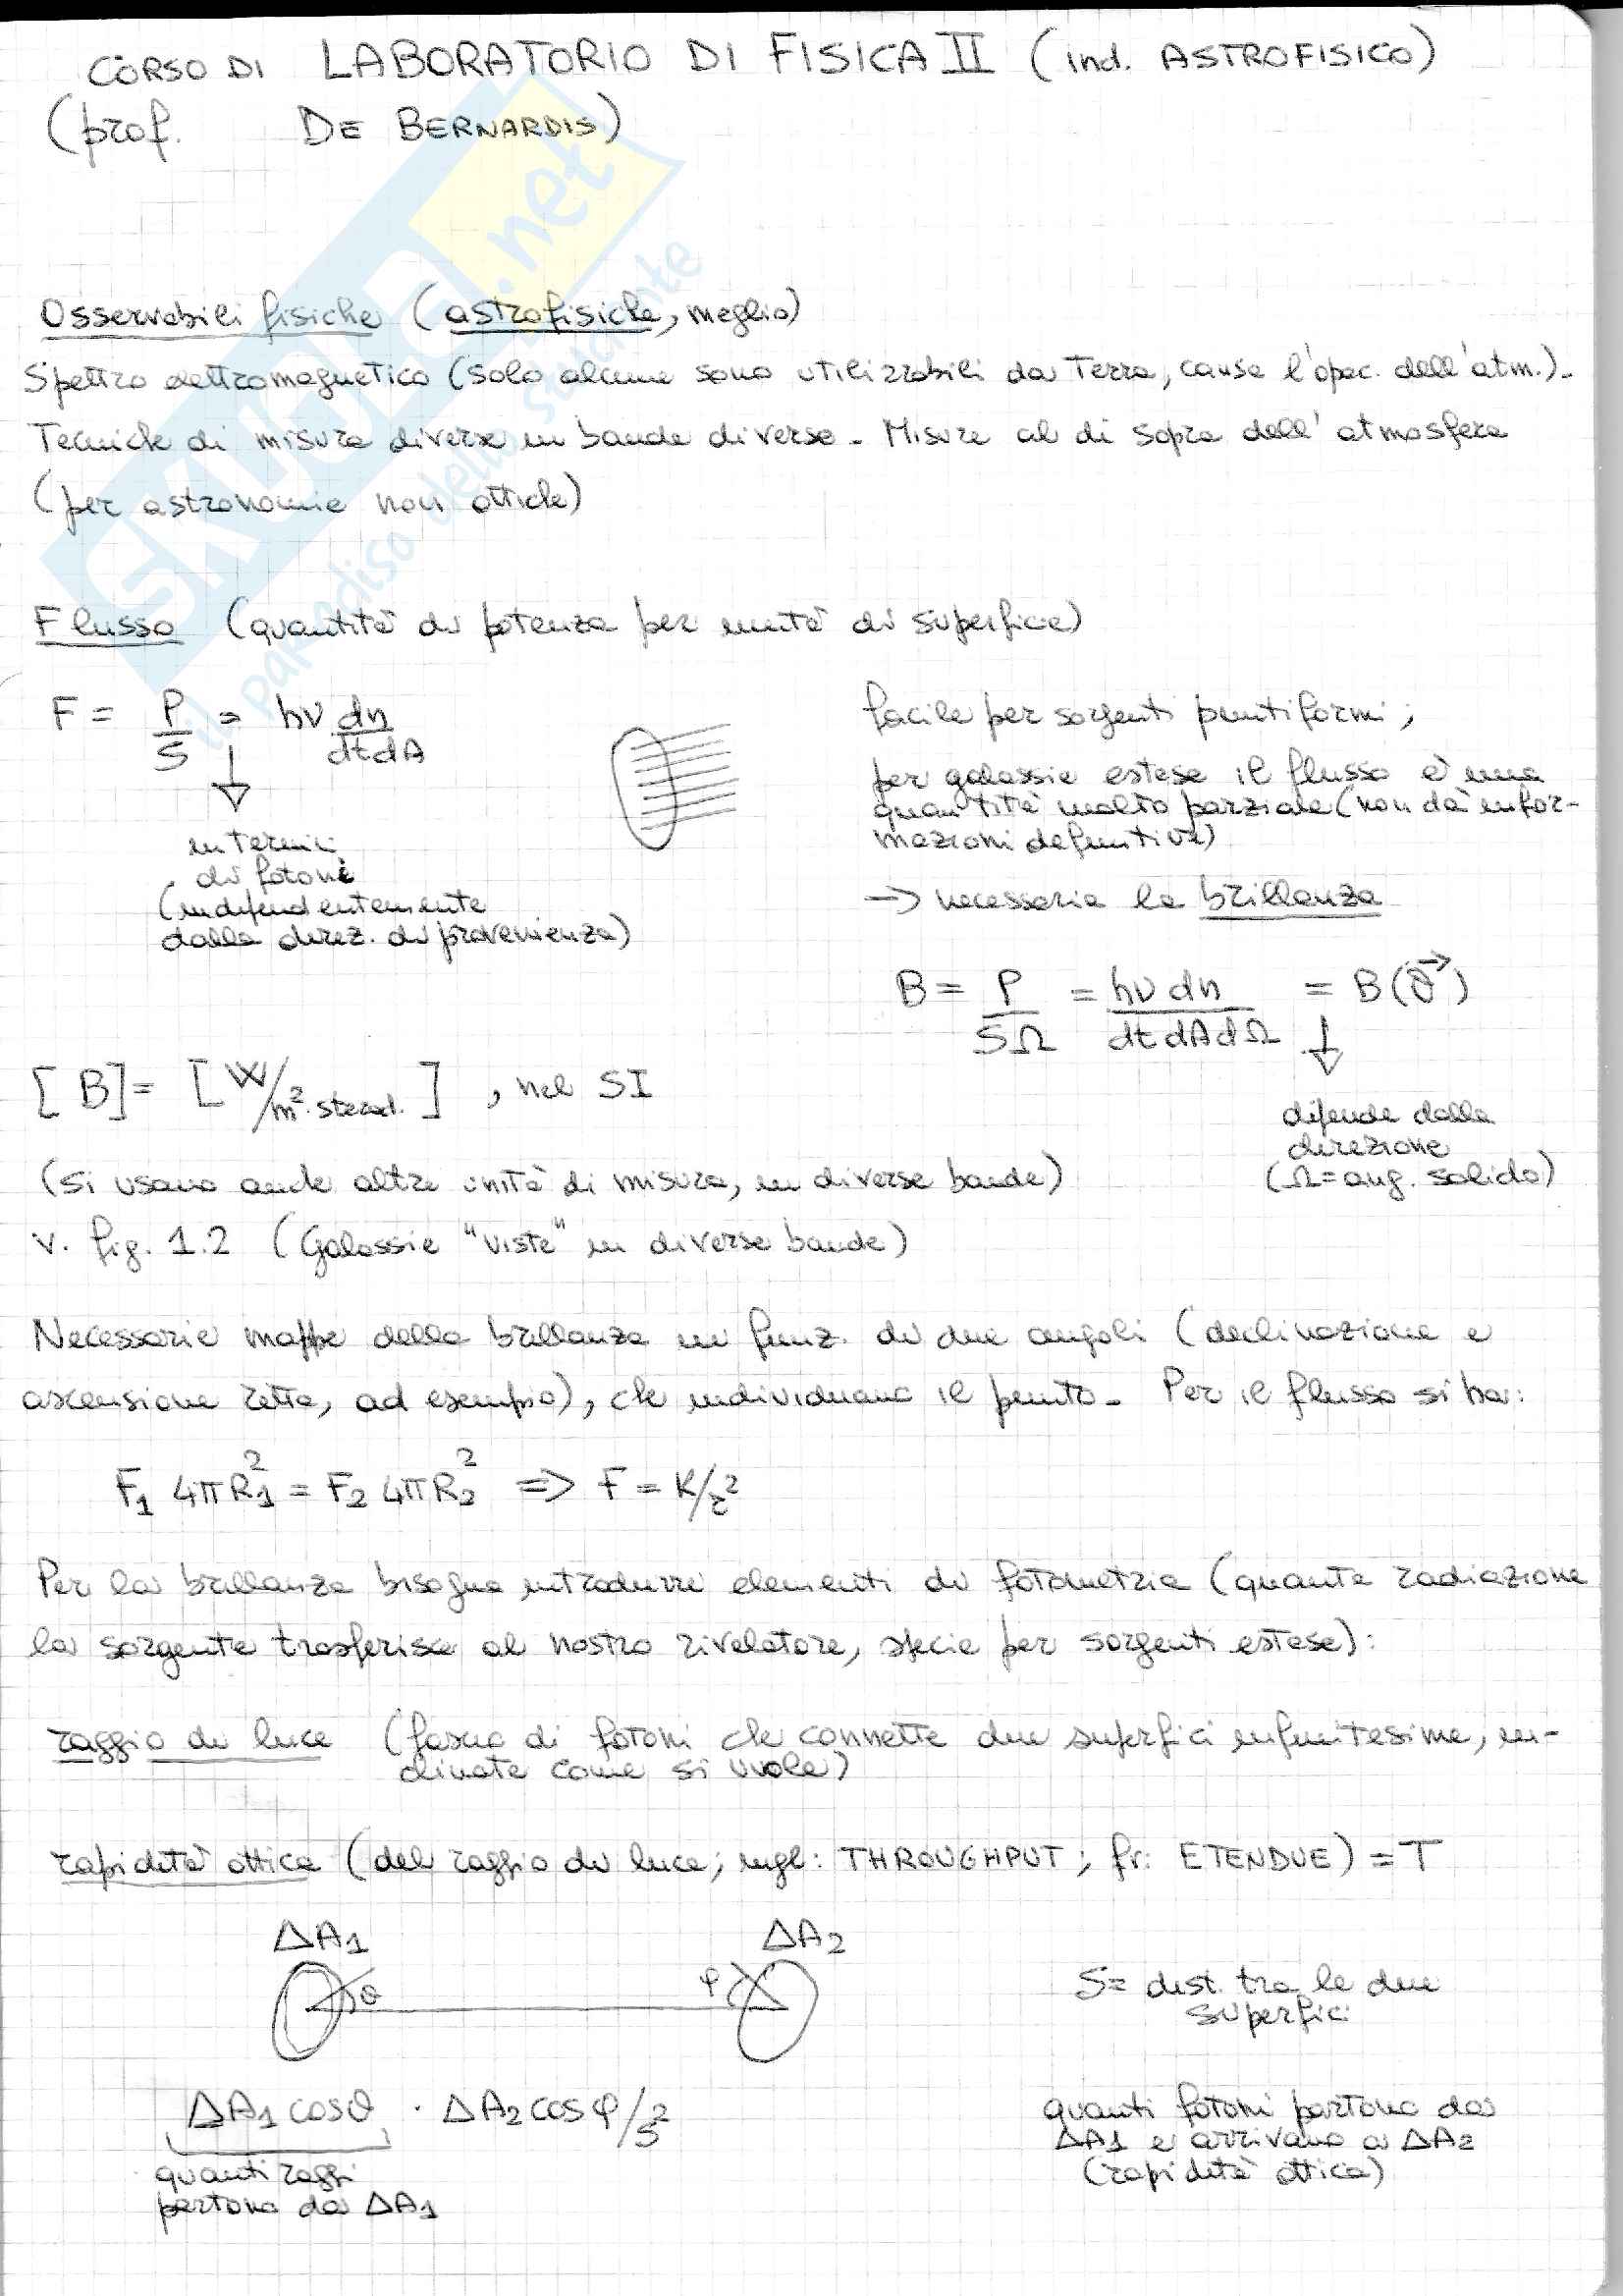 CORSO DI LABORATORIO DI FISICA II (ind. ASTROFISICO)
(prof. DE BERNARDIS)
SKUOLA.net
il paradiso dello studente
Osservabili fisiche (astrofisiche, meglio)
Spettro elettromagnetico (solo alcune sono utilizzabili da Terra, causa l'opac. dell'atm.).
Tecniche di misura diverse in bande diverse. Misure al di sopra dell'atmosfera
(per astronomie non ottiche)
Flusso (quantità di potenza per unità di superficie)
F = P/S = hν dn/dtdA
in termini
di fotoni
(indipendentemente
dalla direz. di provenienza)
facile per sorgenti puntiformi;
per galassie estese il flusso è una
quantità molto parziale (non dà infor-
mazioni definitive)
→ necessaria la brillanza
B = P/SΩ = hν dn/dtdAdΩ = B(θ⃗)
dipende dalla
direzione
(Ω = ang. solido)
[B] = [W/m²·sterad.], nel SI
(si usano anche altre unità di misura, in diverse bande)
v. fig. 1.2 (Galassie "viste" in diverse bande)
Necessarie mappe della brillanza in funz. di due angoli (declinazione e
ascensione retta, ad esempio), che individuano il punto. Per il flusso si ha:
F₁ 4πR₁² = F₂ 4πR₂² ⇒ F = K/r²
Per la brillanza bisogna introdurre elementi di fotometria (quanta radiazione
la sorgente trasferisce al nostro rivelatore, specie per sorgenti estese):
raggio di luce (fascio di fotoni che connette due superfici infinitesime, in-
clinate come si vuole)
rapidità ottica (del raggio di luce; ingl: THROUGHPUT; fr: ETENDUE) = T
ΔA₁ ΔA₂
θ φ
S = dist. tra le due
superfici
ΔA₁ cosθ · ΔA₂ cosφ/S²
quanti raggi
partono da ΔA₁
quanti fotoni partono da
ΔA₁ e arrivano a ΔA₂
(rapidità ottica)